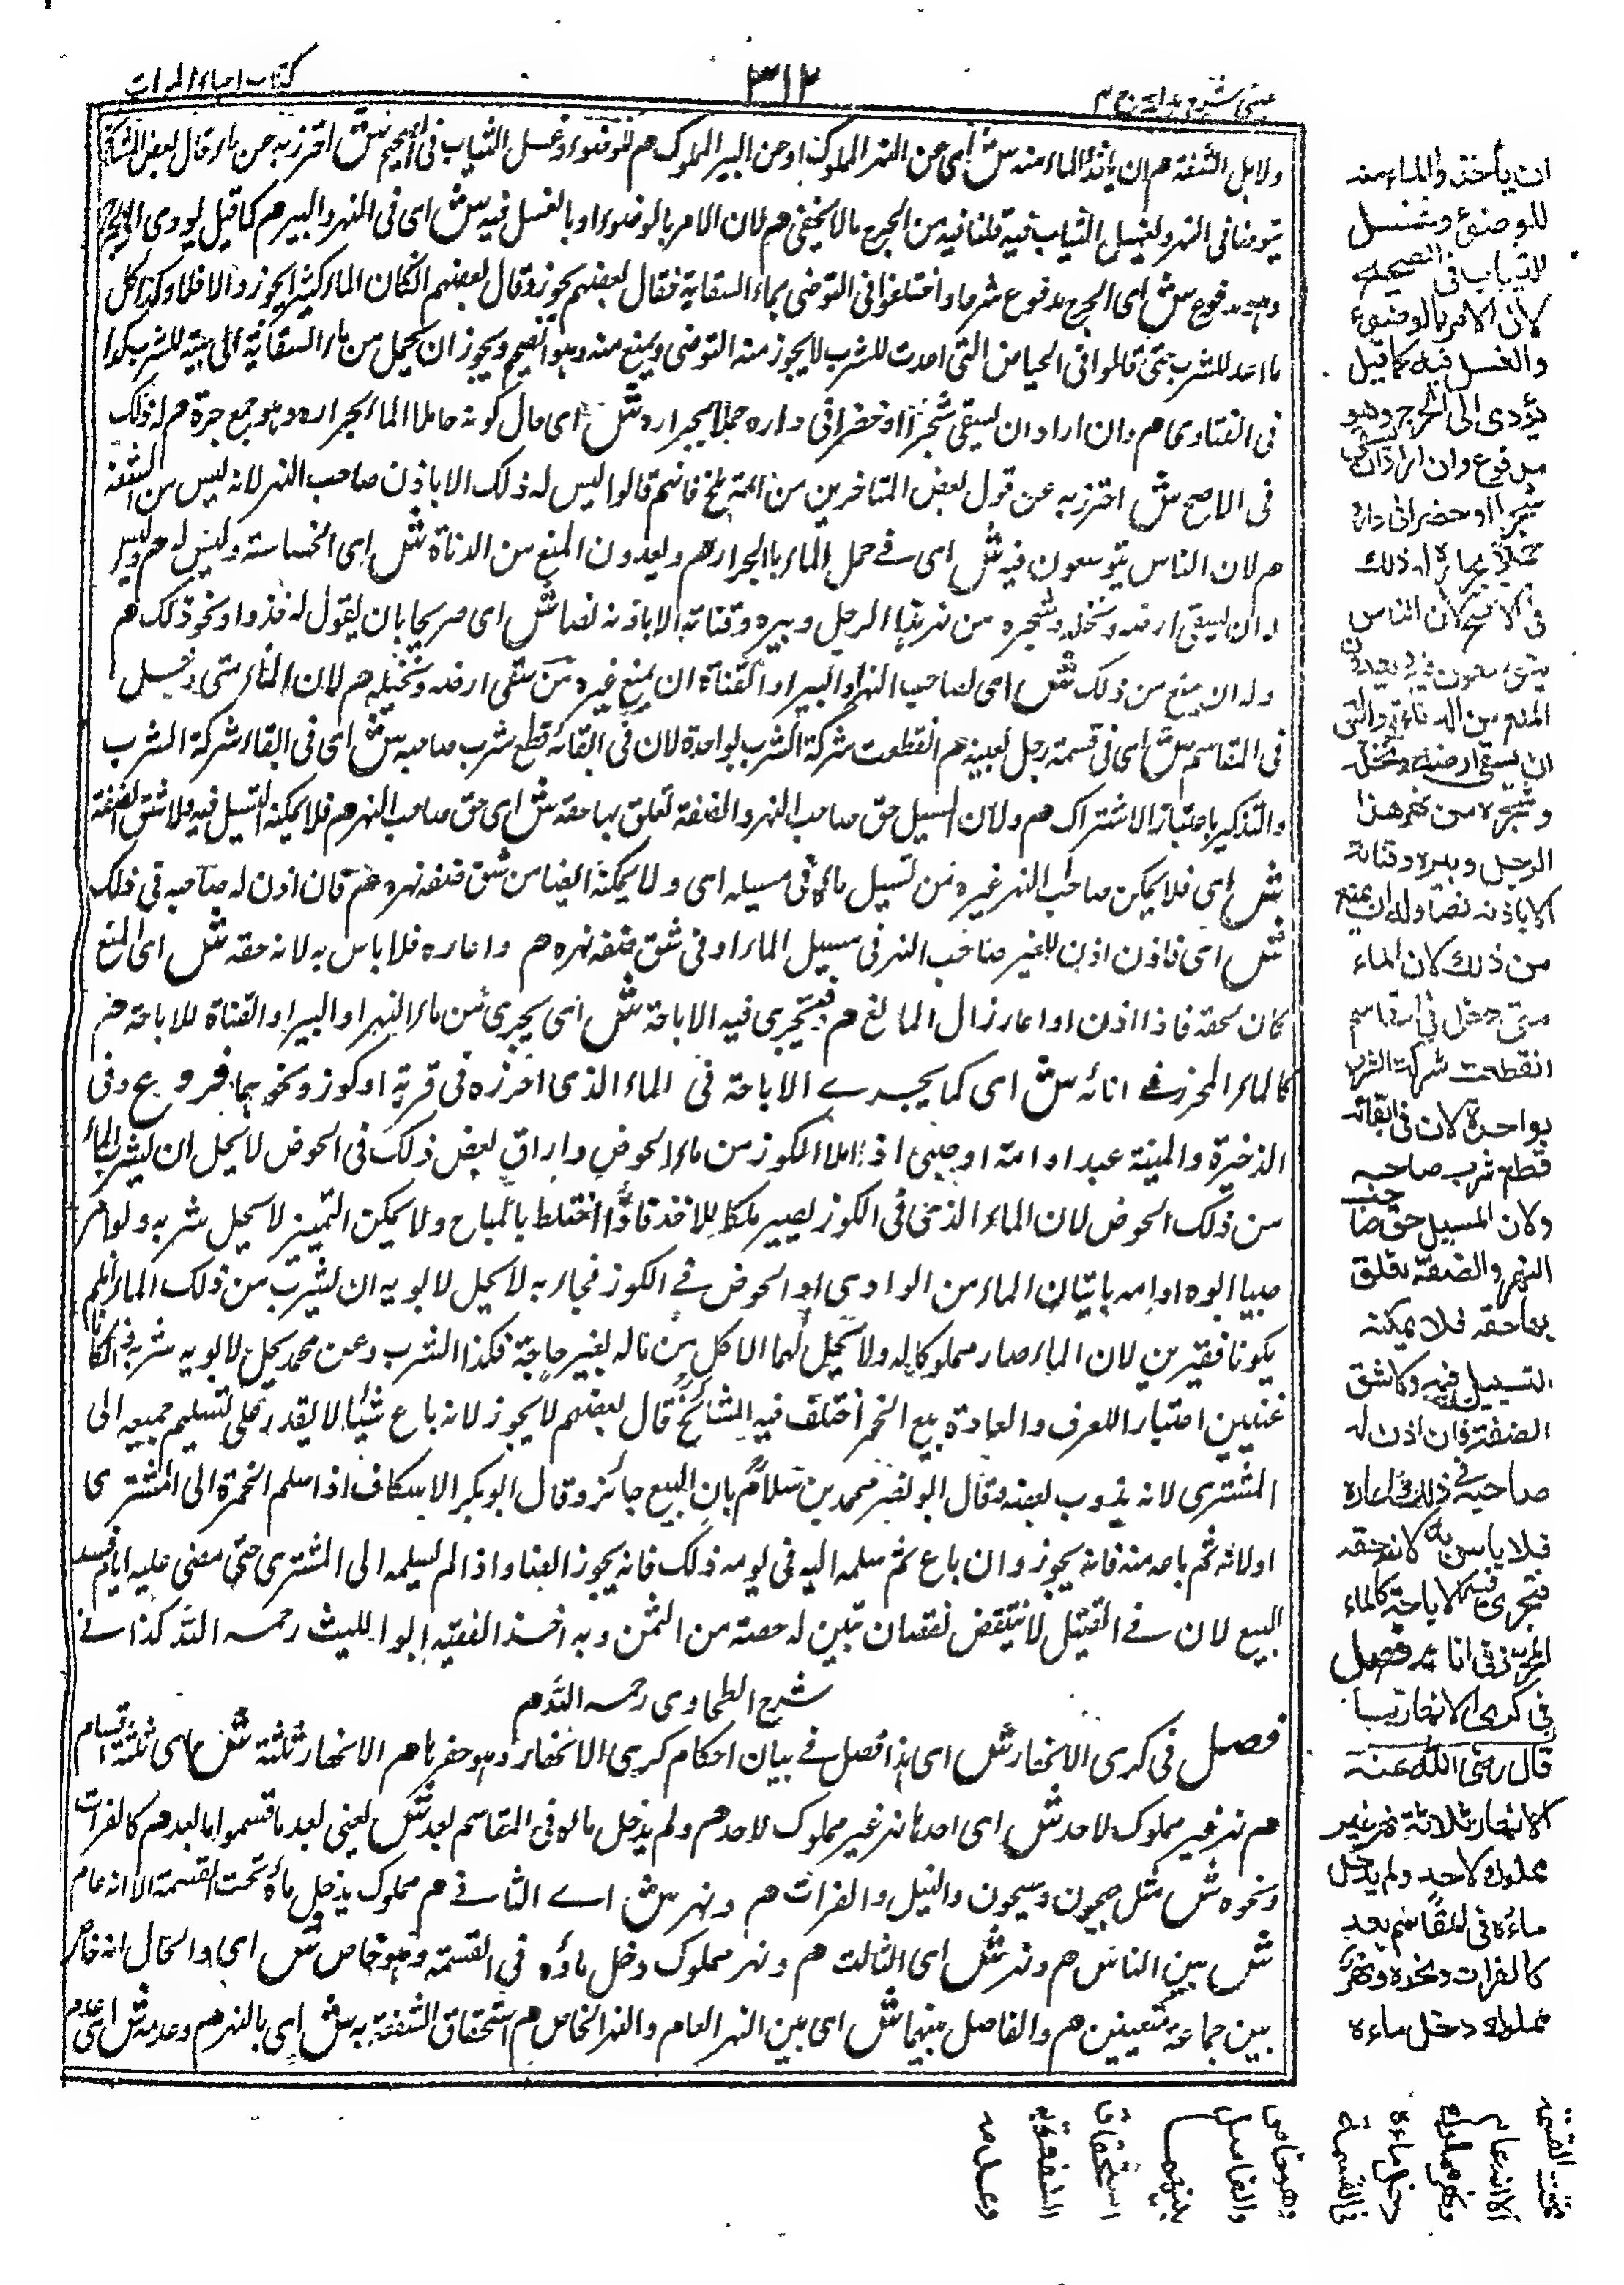 عينى شرح هداية ج ٣
٣١٢
كتاب احياء الموات
ولاهل الشفة هم ان يأخذوا الماء منه ش اى من النهر المملوك او من البير المملوك هم للوضوء وغسل الثياب فى الصحيح ش احترز به عن ما قال بعض المشائخ
يتوضأ فى النهر ويغسل الثياب فيه قلنا فيه من الحرج ما لا يخفى هم لان الامر بالوضوء او بالغسل فيه ش اى فى النهر والبير هم كما قيل يودى الى الحرج
وهو مدفوع ش اى الحرج مدفوع شرعا واختلفوا فى التوضى بماء السقاية فقال بعضهم يجوز وقال بعضهم ان كان الماء كثيرا يجوز والا فلا وكذا كل
ما اعد للشرب حتى قالوا فى الحياض التى اعدت للشرب لا يجوز منه التوضى ويمنع منه وهو الصحيح ويجوز ان يحمل من ماء السقاية الى بيته للشرب كذا
فى الفتاوى هم وان اراد ان يسقى شجرا او خضرا فى داره حملا بجراره ش اى حال كونه حاملا الماء بجراره وهو جمع جرة هم له ذلك
فى الاصح ش احترز به عن قول بعض المتاخرين من ائمة بلخ فانهم قالوا ليس له ذلك الا باذن صاحب النهر لانه ليس من الشفة
هم لان الناس يتوسعون فيه ش اى فى حمل الماء بالجرار هم ويعدون المنع من الدناءة ش اى الخساسة وليس له هم وليس
له ان يسقى ارضه ونخله وشجره من نهر هذا الرجل وبيره وقناته الا باذنه نصا ش اى صريحا بان يقول له خذوا ونحو ذلك هم
وله ان يمنع من ذلك ش اى لصاحب النهر او البير او القناة ان يمنع غيره من سقى ارضه ونخيله هم لان الماء متى دخل
فى المقاسم ش اى فى قسمة رجل بعينه هم انقطعت شركة الشرب بواحدة لان فى ابقائه قطع شرب صاحبه ش اى فى ابقاء شركة الشرب
والتذكير باعتبار الاشتراك هم ولان المسيل حق صاحب النهر والضفة تعلق بها حقه ش اى حق صاحب النهر هم فلا يمكنه التسييل فيه ولا شق الضفة
ش اى فلا يمكن صاحب النهر غيره من تسييل مائه فى مسيله اى ولا يمكنه ايضا من شق ضفة نهره هم فان اذن له صاحبه فى ذلك
ش اى فاذن اذن للغير صاحب النهر فى مسيل الماء او فى شق ضفة نهره هم واعاره فلا باس به لانه حقه ش اى المنع
كان لحقه فاذا اذن او اعار زال المانع هم فيجرى فيه الاباحة ش اى يجرى من ماء النهر او البير او القناة للاباحة هم
كالماء المحرز فى انائه ش اى كما يجرى الاباحة فى الماء الذى احرزه فى قربة او كوز ونحوهما فروع وفى
الذخيرة والمنية عبد او امة او صبى اذا املا الكوز من ماء الحوض واراق بعض ذلك فى الحوض لا يحل ان يشرب الماء
من ذلك الحوض لان الماء الذى فى الكوز يصير ملكا للاخذ فاذا اختلط بالمباح ولا يمكن التمييز لا يحل شربه ولو امر
صبيا ابوه او امه باتيان الماء من الوادى او الحوض فى الكوز فجاء به لا يحل لابويه ان يشربا من ذلك الماء ان لم
يكونا فقيرين لان الماء صار مملوكا له ولا يحل لهما الاكل من ماله لغير حاجة فكذا الشرب وعن محمد يحل لابويه شربه ان كانا
غنيين اعتبارا للعرف والعادة بيع الخمر اختلف فيه المشائخ قال بعضهم لا يجوز لانه باع شيئا لا يقدر على تسليم جميعه الى
المشترى لانه يذوب بعضه فقال ابو نصر محمد بن سلام بان البيع جائز وقال ابو بكر الاسكاف اذا سلم الخمرة الى المشترى
اولا ثم باعه منه فانه يجوز وان باع ثم سلمه اليه فى يومه ذلك فانه يجوز ايضا واذا لم يسلمه الى المشترى حتى مضى عليه ايام فسد
البيع لان فى القليل لا ينتقض نقصان تبين له حصته من الثمن وبه اخذ الفقيه ابو الليث رحمه الله كذا فى
شرح الطحاوى رحمه الله هم
فصل فى كرى الانهار ش اى هذا فصل فى بيان احكام كرى الانهار وهو حفرها هم الانهار ثلثة ش اى ثلثة اقسام
هم نهر غير مملوك لاحد ش اى احدها نهر غير مملوك لاحد هم ولم يدخل ماؤه فى المقاسم بعد ش يعنى بعد ما قسموا ما بعد هم كالفرات
ونحوه ش مثل جيحون وسيحون والنيل والفرات هم ونهر ش اى الثانى هم مملوك يدخل ماؤه تحت القسمة الا انه عام
ش بين الناس هم ونهر ش اى الثالث هم ونهر مملوك دخل ماؤه فى القسمة وهو خاص ش اى والحال انه خاص
بين جماعة متعينين هم والفاصل بينهما ش اى بين النهر العام والنهر الخاص هم استحقاق الشفعة به ش اى بالنهر هم وعدمه ش اى عدم
ان يأخذوا الماء منه
للوضوء وغسل
الثياب فى الصحيح
لان الامر بالوضوء
والغسل فيه كما قيل
يؤدى الى الحرج وهو
مدفوع وان اراد ان يسقى
شجرا او خضرا فى داره
حملا بجراره له ذلك
فى الاصح لان الناس
يتوسعون فيه ويعدون
المنع من الدناءة وليس له
ان يسقى ارضه ونخله
وشجره من نهر هذا
الرجل وبيره وقناته
الا باذنه نصا وله ان يمنع
من ذلك لان الماء
متى دخل فى المقاسم
انقطعت شركة الشرب
بواحدة لان فى ابقائه
قطع شرب صاحبه
ولان المسيل حق صاحب
النهر والضفة تعلق
بها حقه فلا يمكنه
التسييل فيه ولا شق
الضفة فان اذن له
صاحبه فى ذلك واعاره
فلا باس به لانه حقه
فتجرى فيه الاباحة كالماء
المحرز فى انائه فصل
فى كرى الانهار
قال رضى الله عنه
الانهار ثلاثة نهر غير
مملوك لاحد ولم يدخل
ماؤه فى المقاسم بعد
كالفرات ونحوه ونهر
مملوك دخل ماءه
تحت القسمة
الا انه عام
ونهر مملوك
دخل ماءه
فى القسمة
وهو خاص
والفاصل
بينهما
استحقاق
الشفعة به
وعدمه